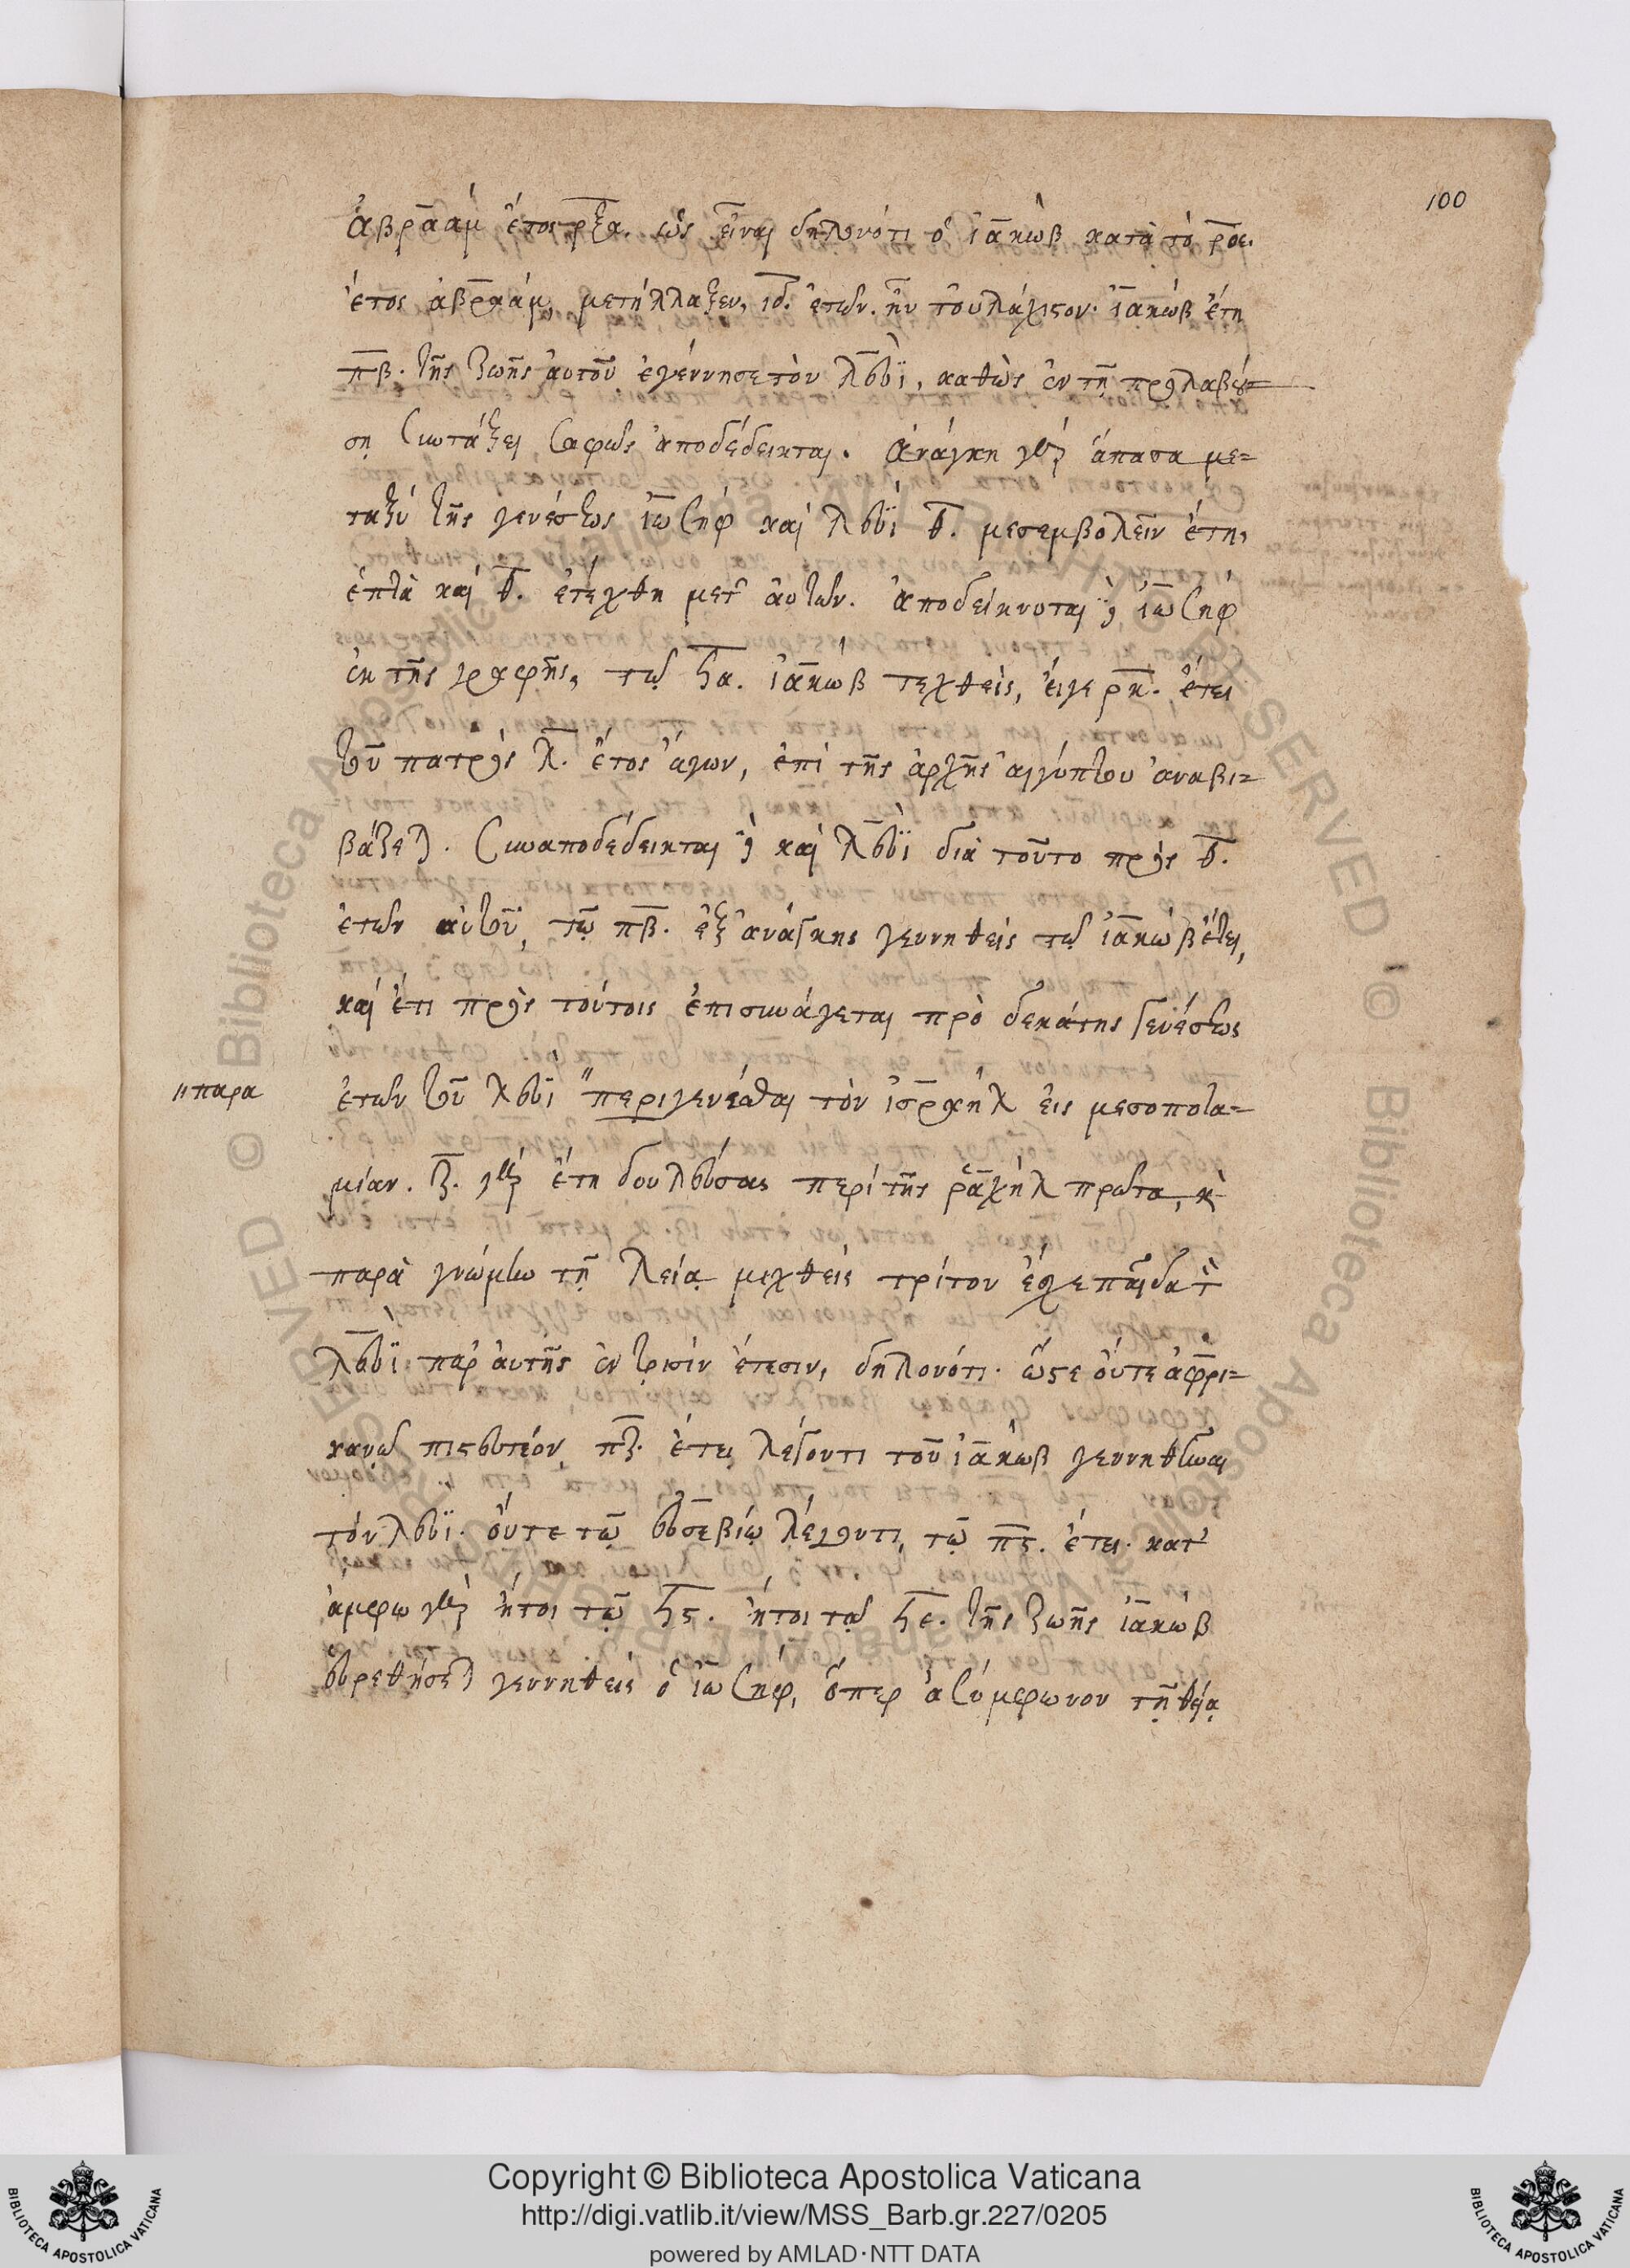 100
ἀβραὰμ ἔτος ρξα. ὡς εἶναι δηλονότι ὁ ἰακὼβ κατὰ τὸ ροε.
ἔτος ἀβραάμ, μετήλλαξεν, ιδ. ἐτῶν. ἦν τοὐλάχιστον. ἰακὼβ ἔτη
πβ. τῆς ζωῆς αὐτοῦ ἐγέννησε τὸν λευὶ, καθὼς ἐν τῇ προλαβού=
σῃ συντάξει σαφῶς ἀποδέδεικται. ἀνάγκη γὰρ ἅπασα με=
ταξὺ τῆς γενέσεως ἰωσὴφ καὶ λευὶ θ. μεσεμβολεῖν ἔτη,
ἑπτὰ καὶ θ. ἐτέχθη μετ' αὐτῶν. ἀποδείκνυται δὲ ἰωσὴφ
ἐκ τῆς γραφῆς, τῷ ϟα. ἰακὼβ τεχθεὶς, εἴγε ρκ. ἔτει
τοῦ πατρὸς λ. ἔτος ἄγων, ἐπὶ τῆς ἀρχῆς αἰγύπτου ἀναβι=
βάζεται. συναποδέδεικται δὲ καὶ λευὶ διὰ τοῦτο πρὸς θ.
ἐτῶν αὐτοῦ, τῷ πβ. ἐξ ἀνάγκης γεννηθεὶς τῷ ἰακὼβ ἔτει,
καὶ ἔτι πρὸς τούτοις ἐπισυνάγεται πρὸ δεκάτης γενέσεως
"παρα
ἐτῶν τοῦ λευὶ "περιγενέσθαι τὸν ἰσραὴλ εἰς μεσοποτα=
μίαν. ζ. γὰρ ἔτη δουλεύσας περὶ τῆς ῥαχὴλ πρῶτα, κ
παρὰ γνώμην τῇ λείᾳ μιχθεὶς τρίτον ἔσχε παῖδα τὸν
λευὶ παρ' αὐτῆς ἐν τρισὶν ἔτεσιν, δηλονότι. ὥστε οὔτε ἀφρι=
κανῷ πιστευτέον, πζ. ἔτει λέγοντι τοῦ ἰακὼβ γεννηθῆναι
τὸν λευὶ. οὔτε τῷ εὐσεβίῳ λέγοντι, τῷ πϛ. ἔτει. κατ'
ἄμφω γὰρ ἤτοι τῷ ϟϛ. ἤτοι τῷ ϟε. τῆς ζωῆς ἰακὼβ
εὑρεθήσεται γεννηθεὶς ὁ ἰωσὴφ, ὅπερ ἀσύμφωνον τῇ θείᾳ
Copyright © Biblioteca Apostolica Vaticana
http://digi.vatlib.it/view/MSS_Barb.gr.227/0205
powered by AMLAD·NTT DATA
BIBLIOTECA APOSTOLICA VATICANA
BIBLIOTECA APOSTOLICA VATICANA